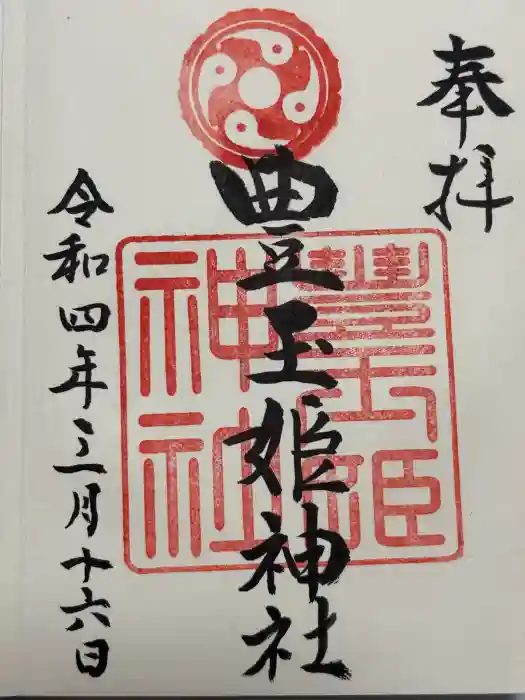 奉拝
豊玉姫神社
豊玉姫神社
令和四年三月十六日